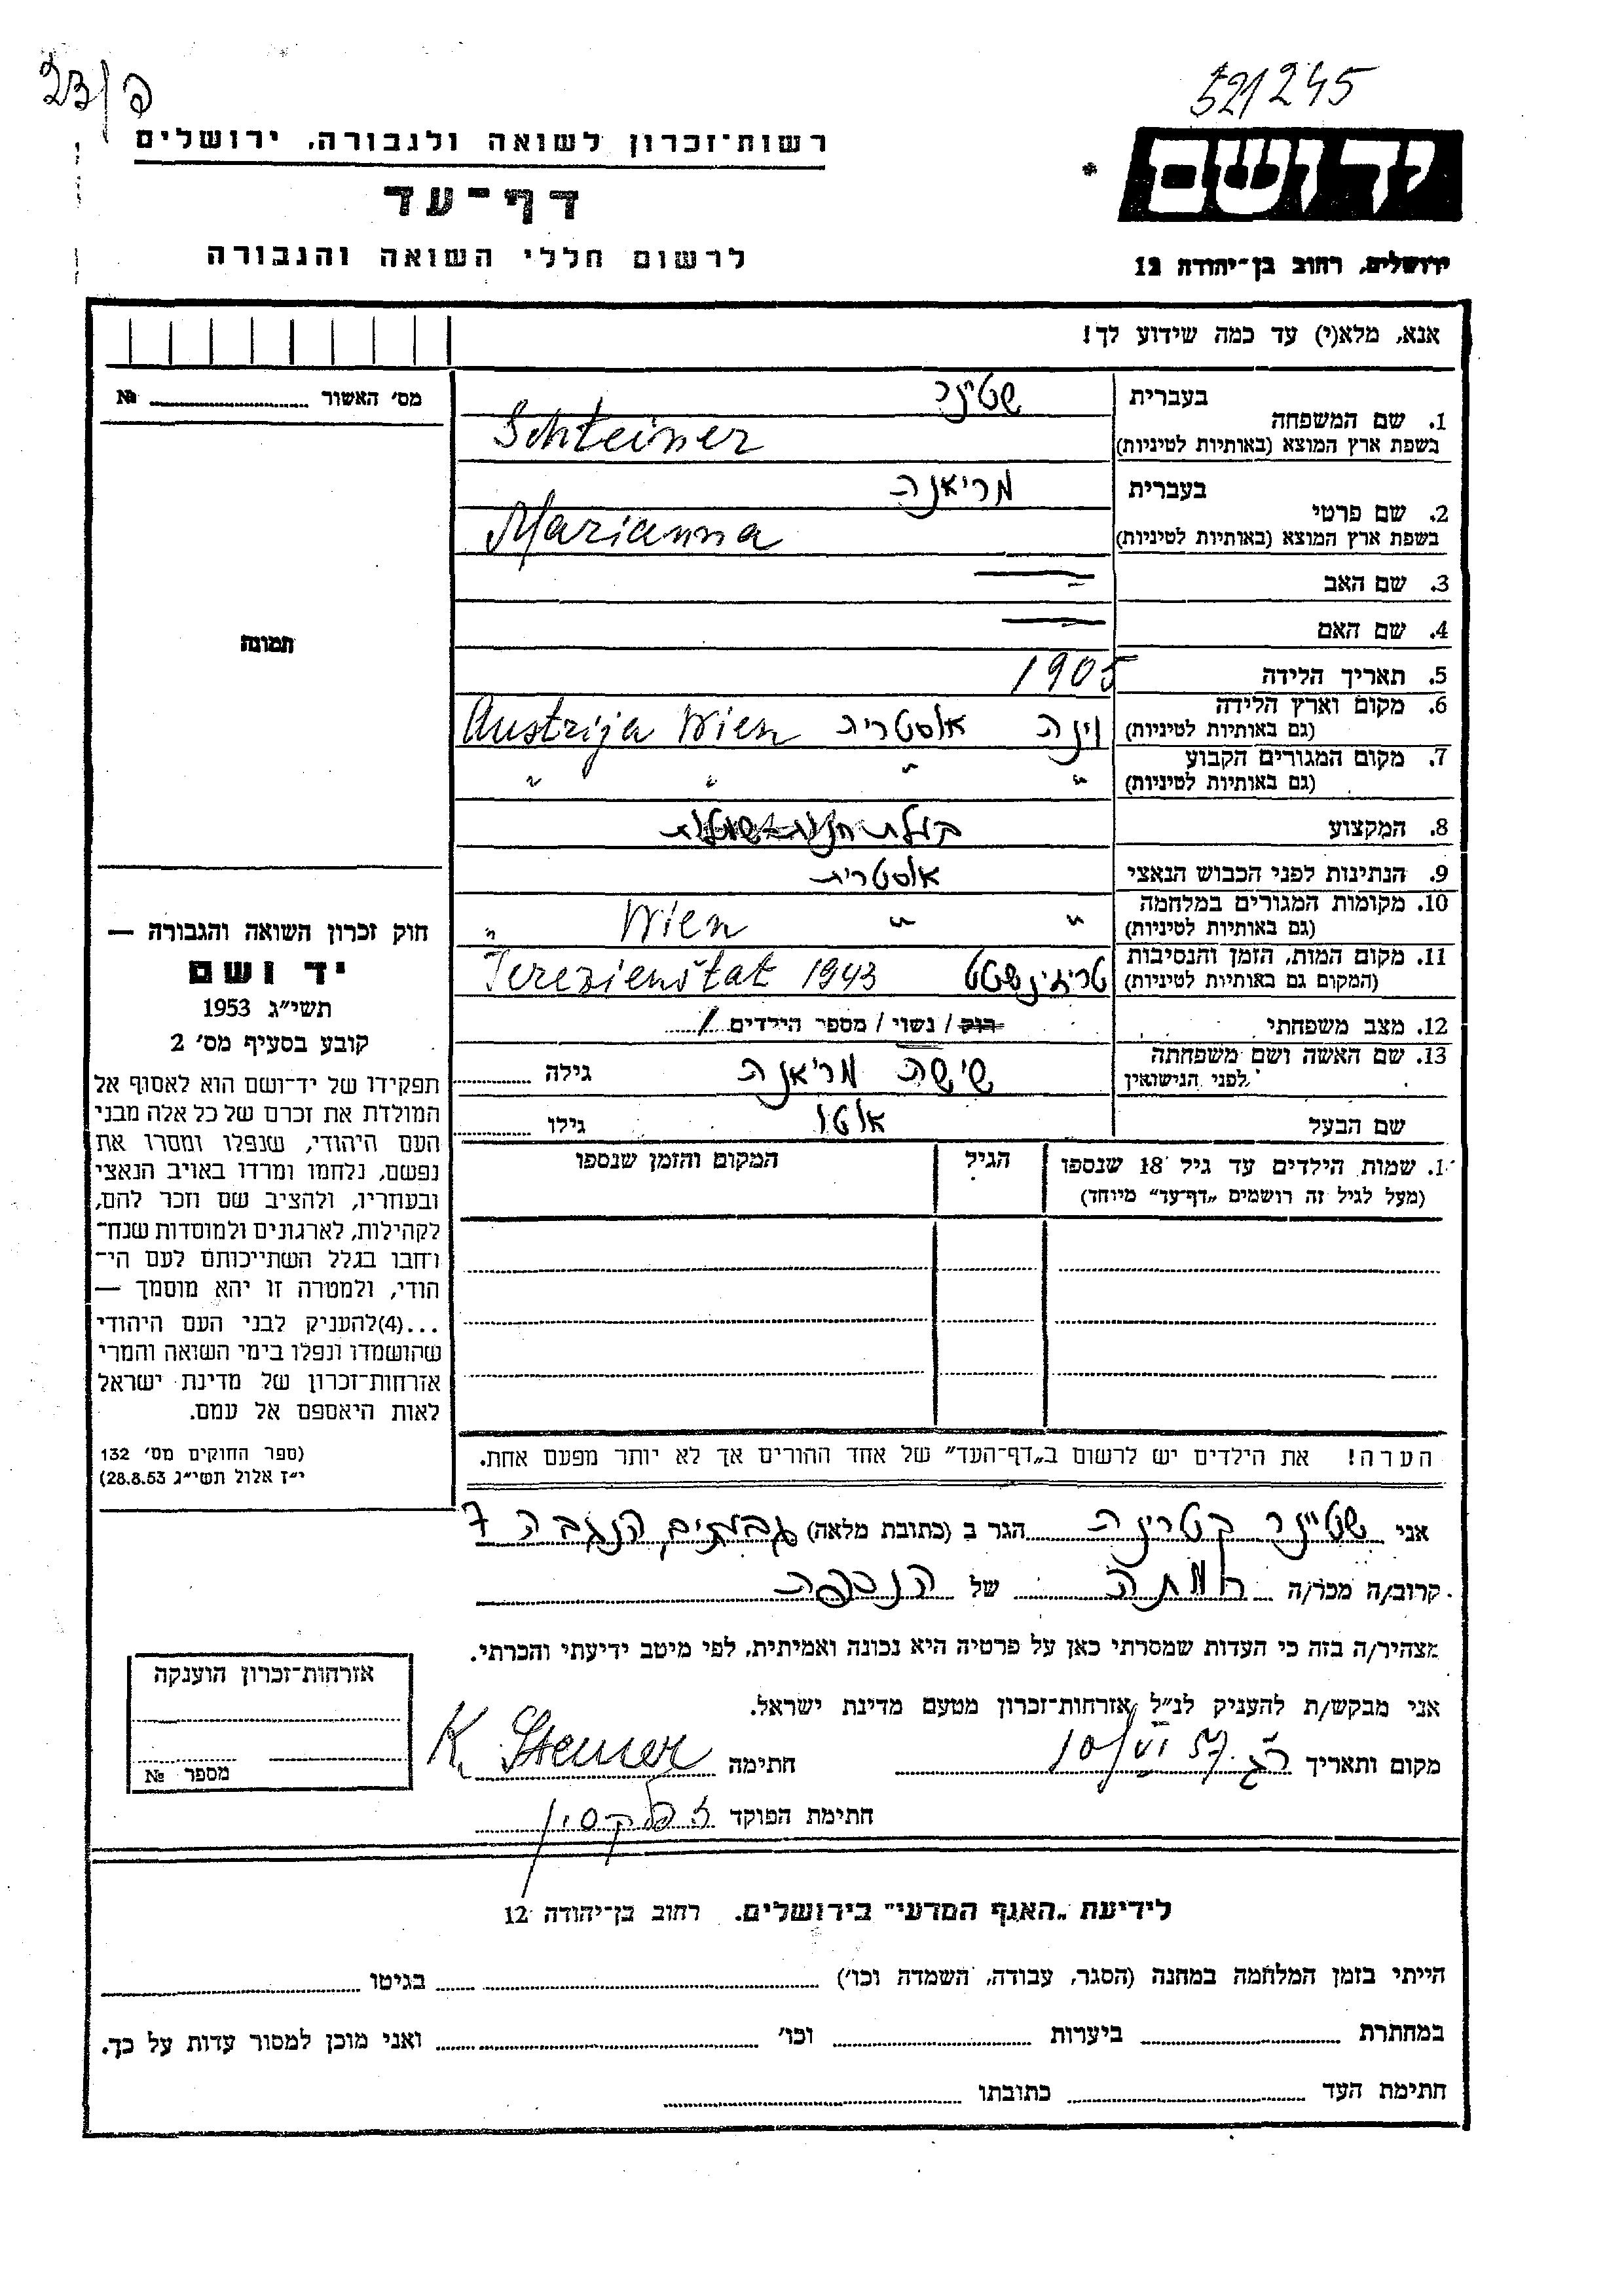 521245
23/פ
יד ושם
ירושלים, רחוב בן־יהודה 12
רשות־זכרון לשואה ולגבורה, ירושלים
דף־עד
לרשום חללי השואה והגבורה
אנא, מלא(י) עד כמה שידוע לך!
מס׳ האשור № 
תמונה
חוק זכרון השואה והגבורה —
יד ושם
תשי״ג 1953
קובע בסעיף מס׳ 2
תפקידו של יד־ושם הוא לאסוף אל
המולדת את זכרם של כל אלה מבני
העם היהודי, שנפלו ומסרו את
נפשם, נלחמו ומרדו באויב הנאצי
ובעוזריו, ולהציב שם וזכר להם,
לקהילות, לארגונים ולמוסדות שנח־
רחבו בגלל השתייכותם לעם הי־
הודי, ולמטרה זו יהא מוסמך —
...(4)להעניק לבני העם היהודי
שהושמדו ונפלו בימי השואה והמרי
אזרחות־זכרון של מדינת ישראל
לאות היאספם אל עמם.
(ספר החוקים מס׳ 132
י״ז אלול תשי״ג 28.8.53)
בעברית שטינר
1. שם המשפחה
בשפת ארץ המוצא (באותיות לטיניות) Schteiner
בעברית מריאנה
2. שם פרטי
בשפת ארץ המוצא (באותיות לטיניות) Marianna
3. שם האב —
4. שם האם —
5. תאריך הלידה 1905
6. מקום וארץ הלידה
(גם באותיות לטיניות) וינה אוסטריה Austrija Wien
7. מקום המגורים הקבוע
(גם באותיות לטיניות) " " " "
8. המקצוע בעלת חנות
9. הנתינות לפני הכבוש הנאצי אוסטרית
10. מקומות המגורים במלחמה
(גם באותיות לטיניות) " " Wien "
11. מקום המות, הזמן והנסיבות
(המקום גם באותיות לטיניות) טריזינשטט Terezienštat 1943
12. מצב משפחתי רוק / נשוי / מספר הילדים 1
13. שם האשה ושם משפחתה
לפני הנישואין מריאנה גילה
שם הבעל אוטו גילו
1. שמות הילדים עד גיל 18 שנספו
(מעל לגיל זה רושמים „דף־עד״ מיוחד)
הגיל
המקום והזמן שנספו
הערה! את הילדים יש לרשום ב„דף־העד״ של אחד ההורים אך לא יותר מפעם אחת.
אני שטיינר קטרינה הגר ב (כתובת מלאה) גבעתיים הנגבה 7
קרוב/ה מכר/ה של הנספה
מצהיר/ה בזה כי העדות שמסרתי כאן על פרטיה היא נכונה ואמיתית, לפי מיטב ידיעתי והכרתי.
אני מבקש/ת להעניק לנ״ל אזרחות־זכרון מטעם מדינת ישראל.
מקום ותאריך ר״ג 10/VI 57. חתימה K. Steiner
חתימת הפוקד
אזרחות־זכרון הוענקה
מספר №
לידיעת „האגף המדעי״ בירושלים. רחוב בן־יהודה 12
הייתי בזמן המלחמה במחנה (הסגר, עבודה, השמדה וכו׳) בגיטו
במחתרת ביערות וכו׳ ואני מוכן למסור עדות על כך.
חתימת העד כתובתו